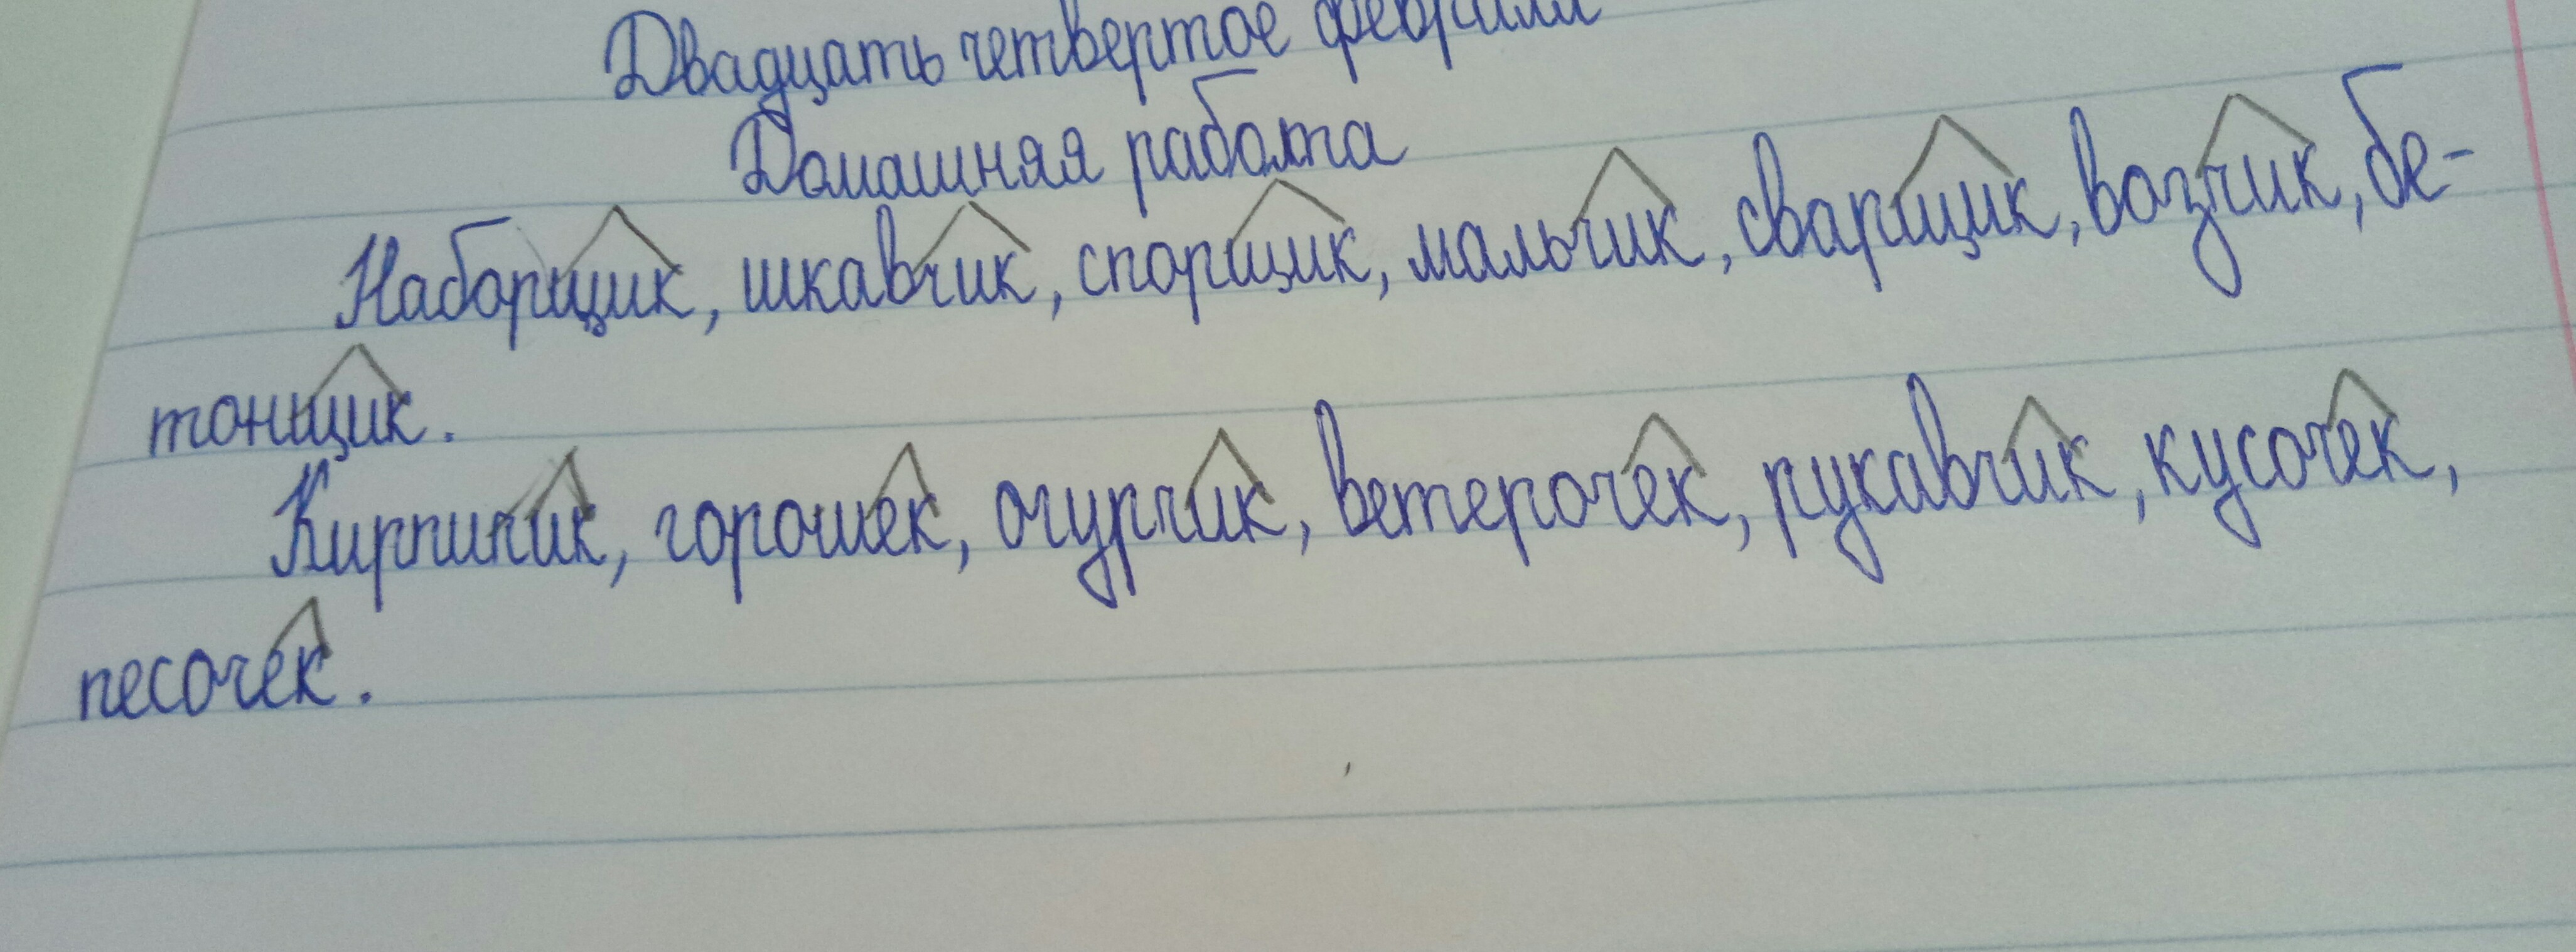 Двадцать четвертое февраля
Домашняя работа
Наборщик, шкавчик, спорщик, мальчик, сварщик, возчик, бе-
тонщик.
Кирпичик, горошек, огурчик, ветерочек, рукавчик, кусочек,
песочек.